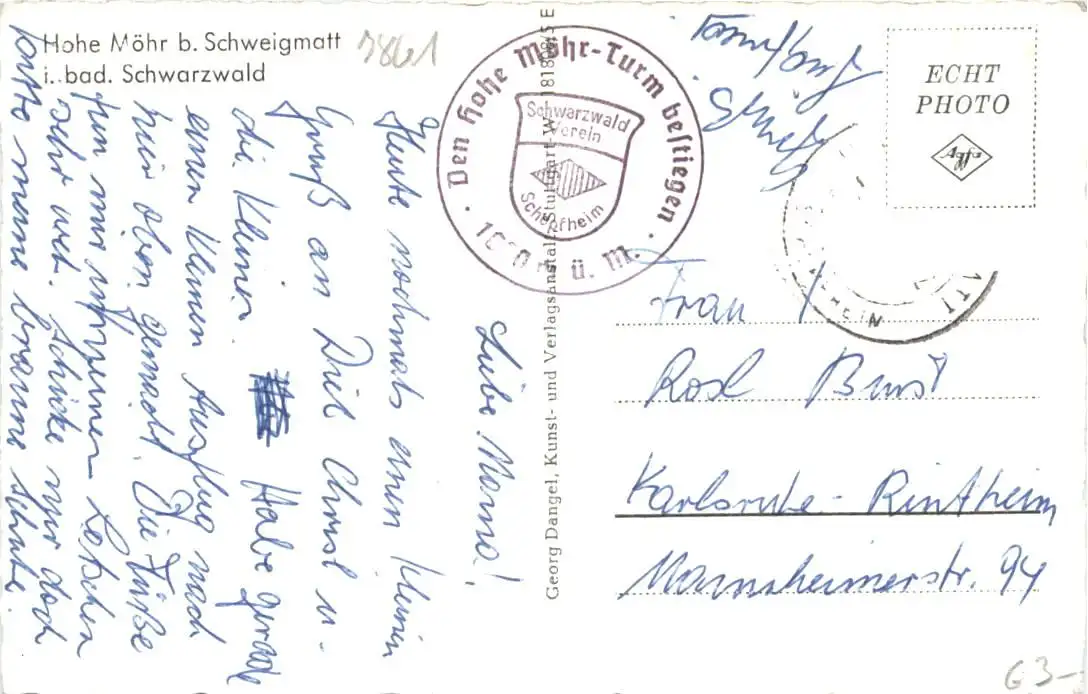 Hohe Möhr b. Schweigmatt
i. bad. Schwarzwald
7861
Den Hohe Möhr-Turm bestiegen
Schwarzwald
Verein
Schopfheim
ü. M.
Georg Dangel, Kunst- und Verlagsanstalt, Stuttgart-W
ECHT
PHOTO
Agfa
Liebe Mama!
Heute nochmals einen kleinen
Gruß an Dich Christl u.
die Kleine. Habe gerade
einen kleinen Ausflug nach
hier oben gemacht. Die Füße
tun mir in
sehr weh. Schicke mir doch
bitte meine braune Schuhe.
Frau
Rosl Burst
Karlsruhe-Rintheim
Mannheimerstr. 94
63-